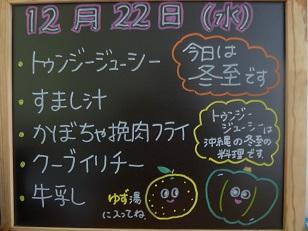 12月22日(水)
今日は
冬至です
・トゥンジージューシー
・すまし汁
・かぼちゃ挽肉フライ
・クーブイリチー
・牛乳し
トゥンジー
ジューシーは
沖縄の冬至の
料理です。
ゆず湯
に入ってね。